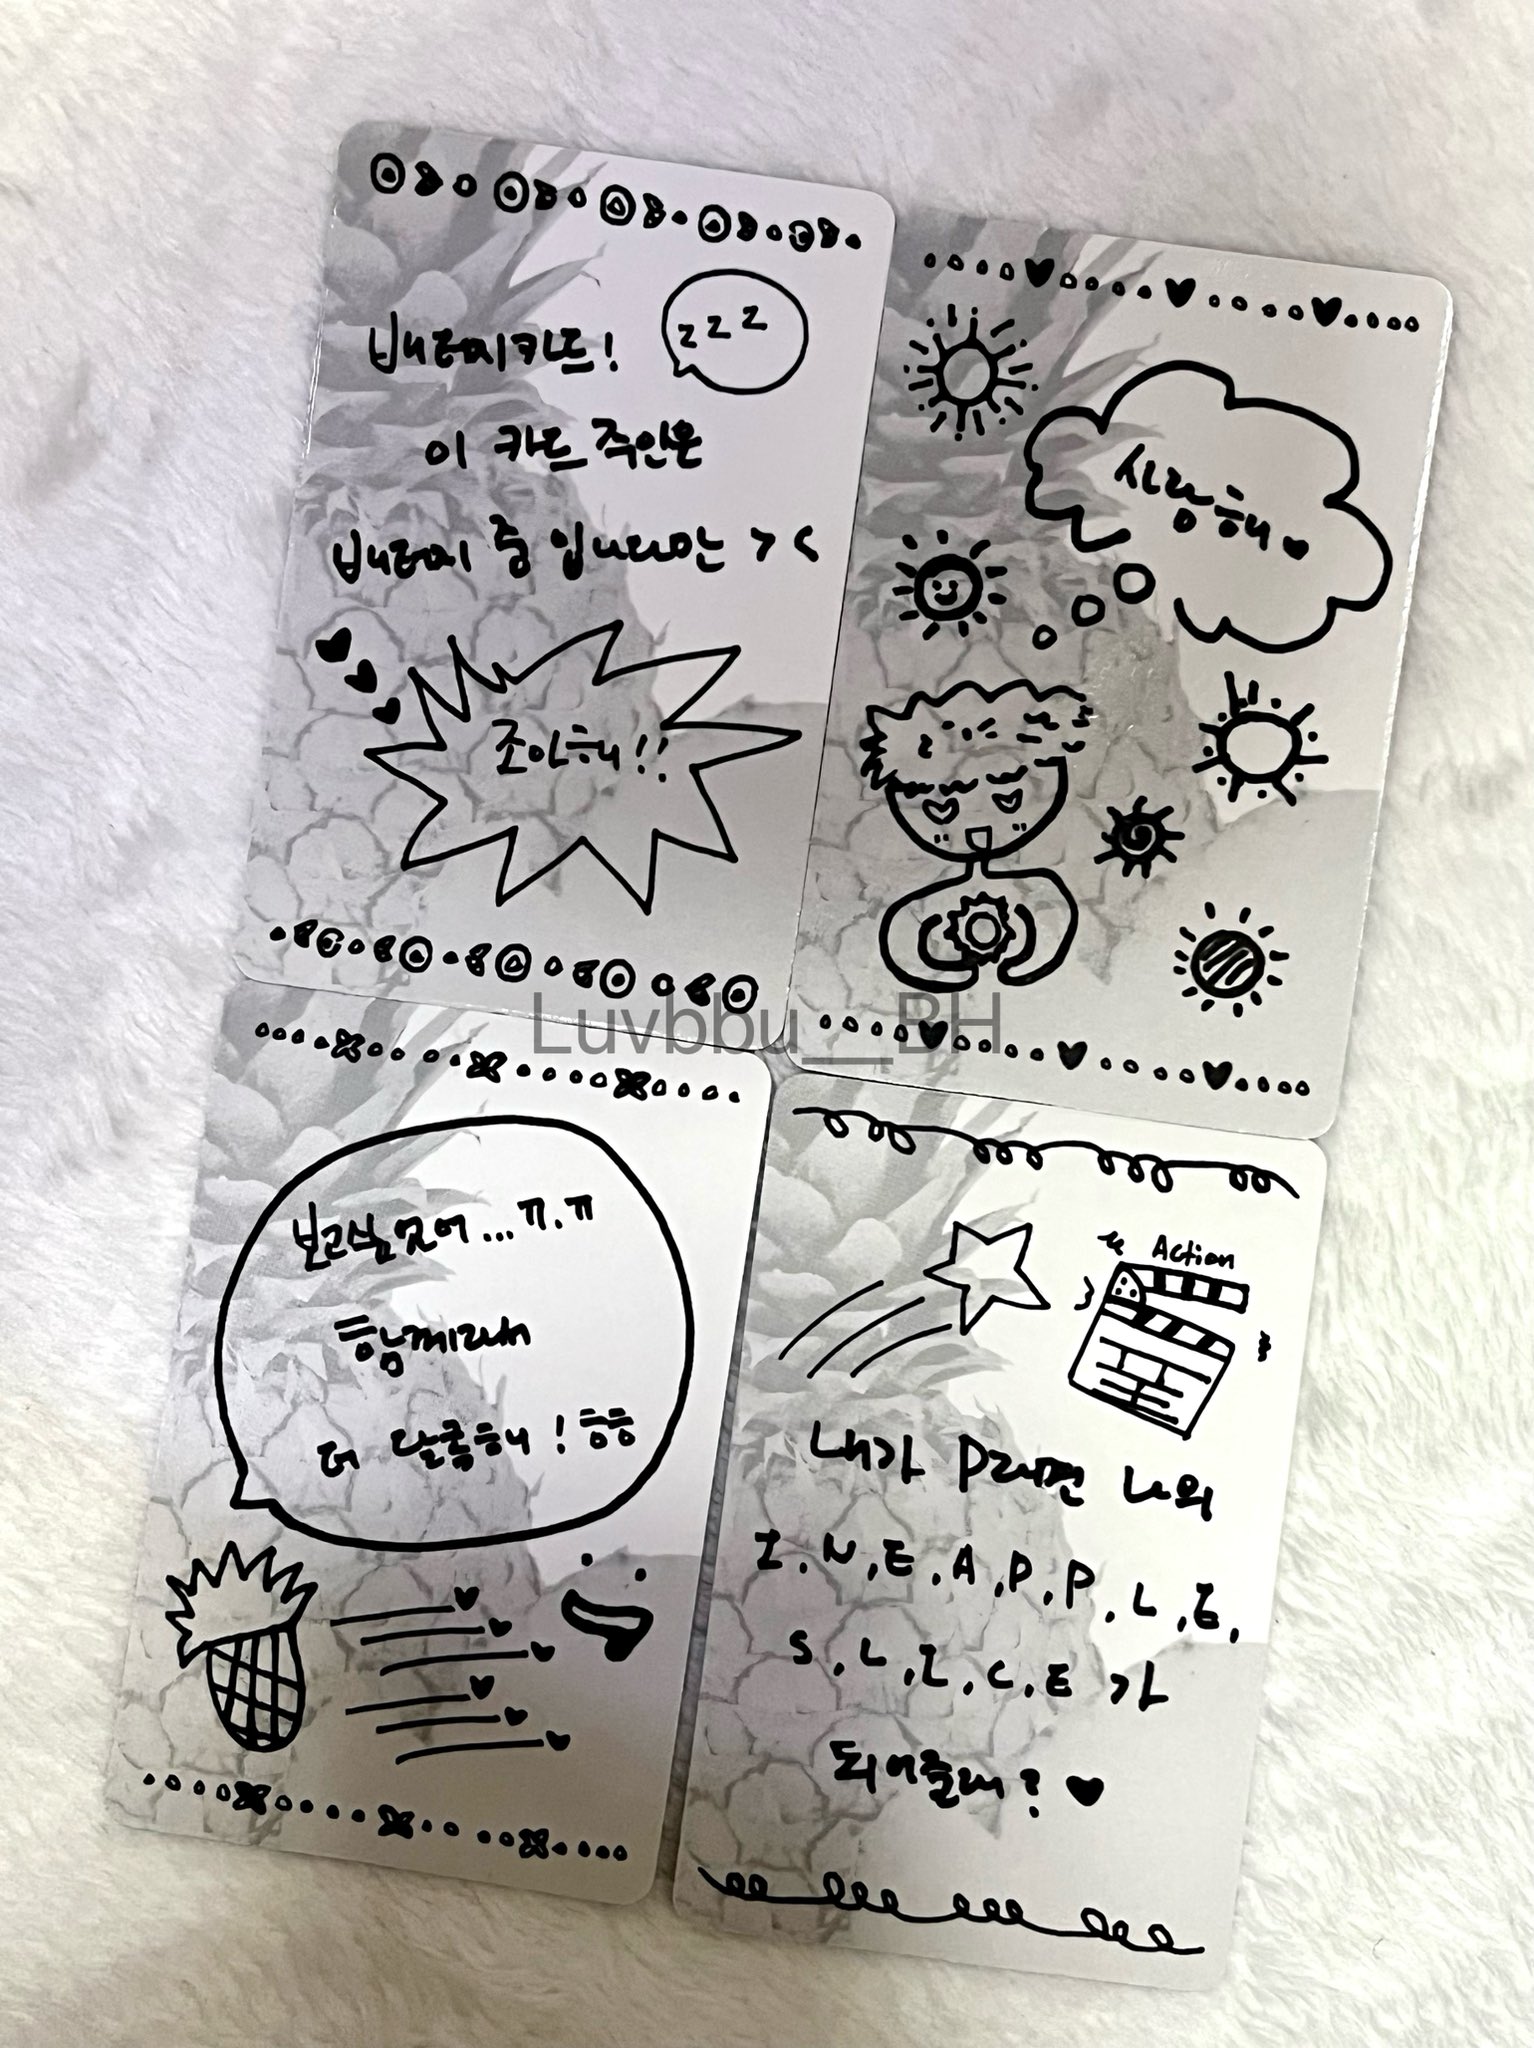 zzz
배터리카드!
이 카드 주인은
배터리 중 입니다만 > <
조아해!!
사랑해♥
Luvbbu__BH
보고싶었어...ㅠ.ㅠ
더 달콤해! 흥흥
Action
내가 P라면 나의
I.N.E.A.P.P.L.E.
S.L.I.C.E가
되어줄래?♥